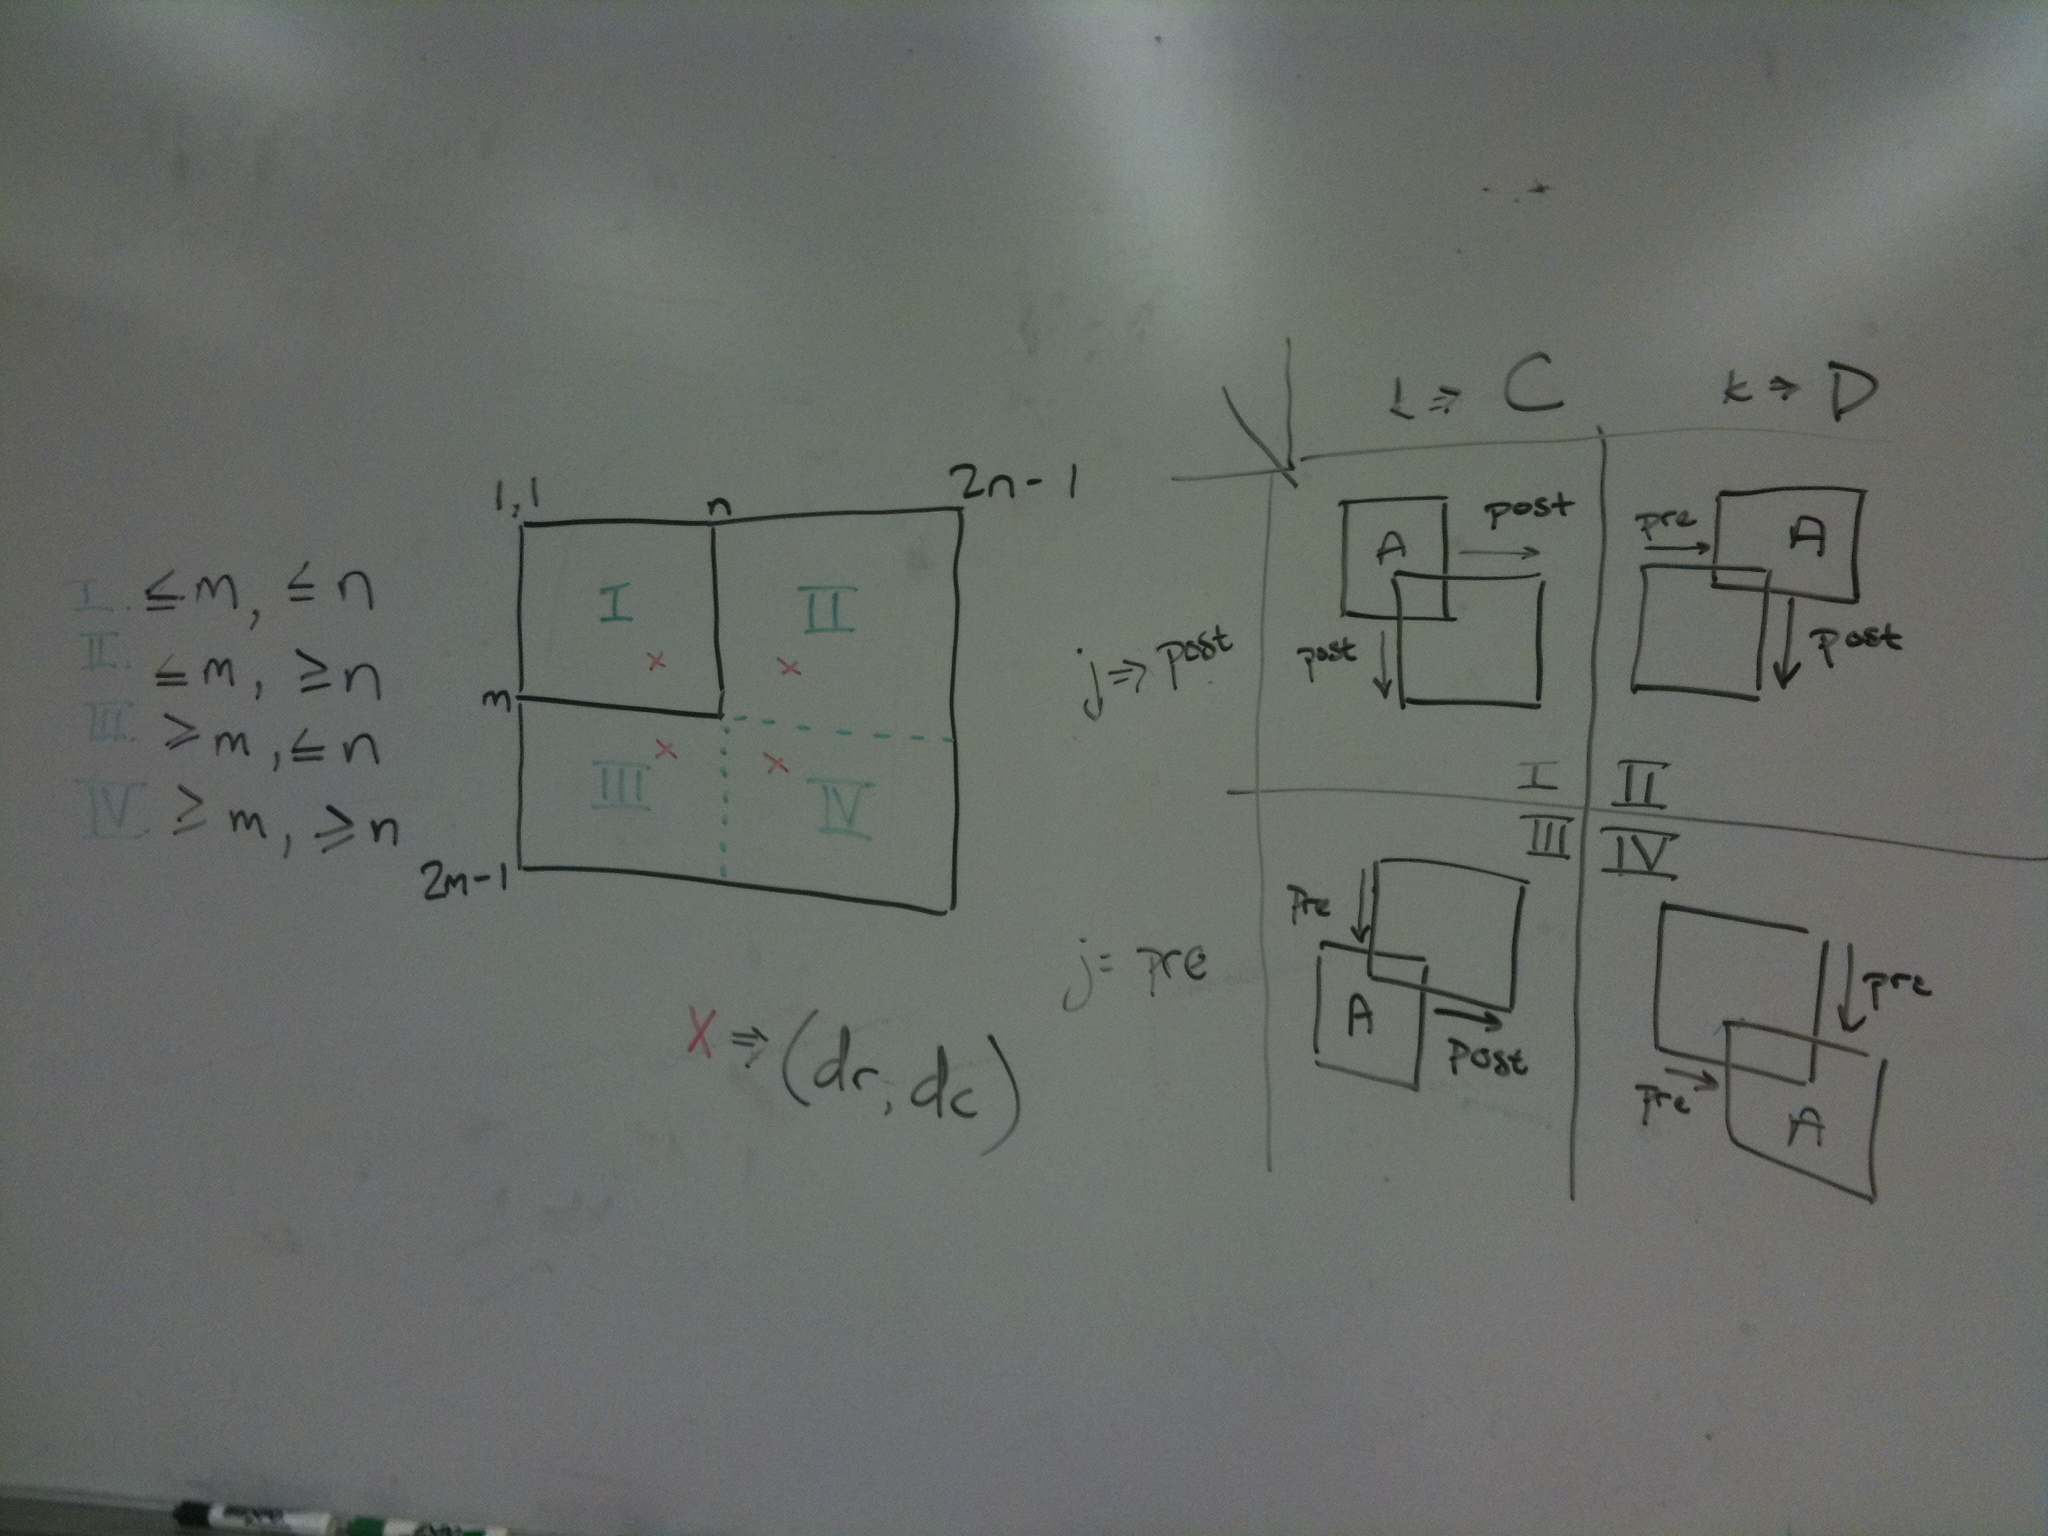 I. ≤ m, ≤ n
II. ≤ m, ≥ n
III. ≥ m, ≤ n
IV. ≥ m, ≥ n
1,1 n 2n-1
I II
m
III IV
2m-1
X ⇒ (dr, dc)
⇒ C k ⇒ D
j ⇒ post
A post
post
pre A
post
I II
III IV
j = pre
Pre
A Post
pre
pre A